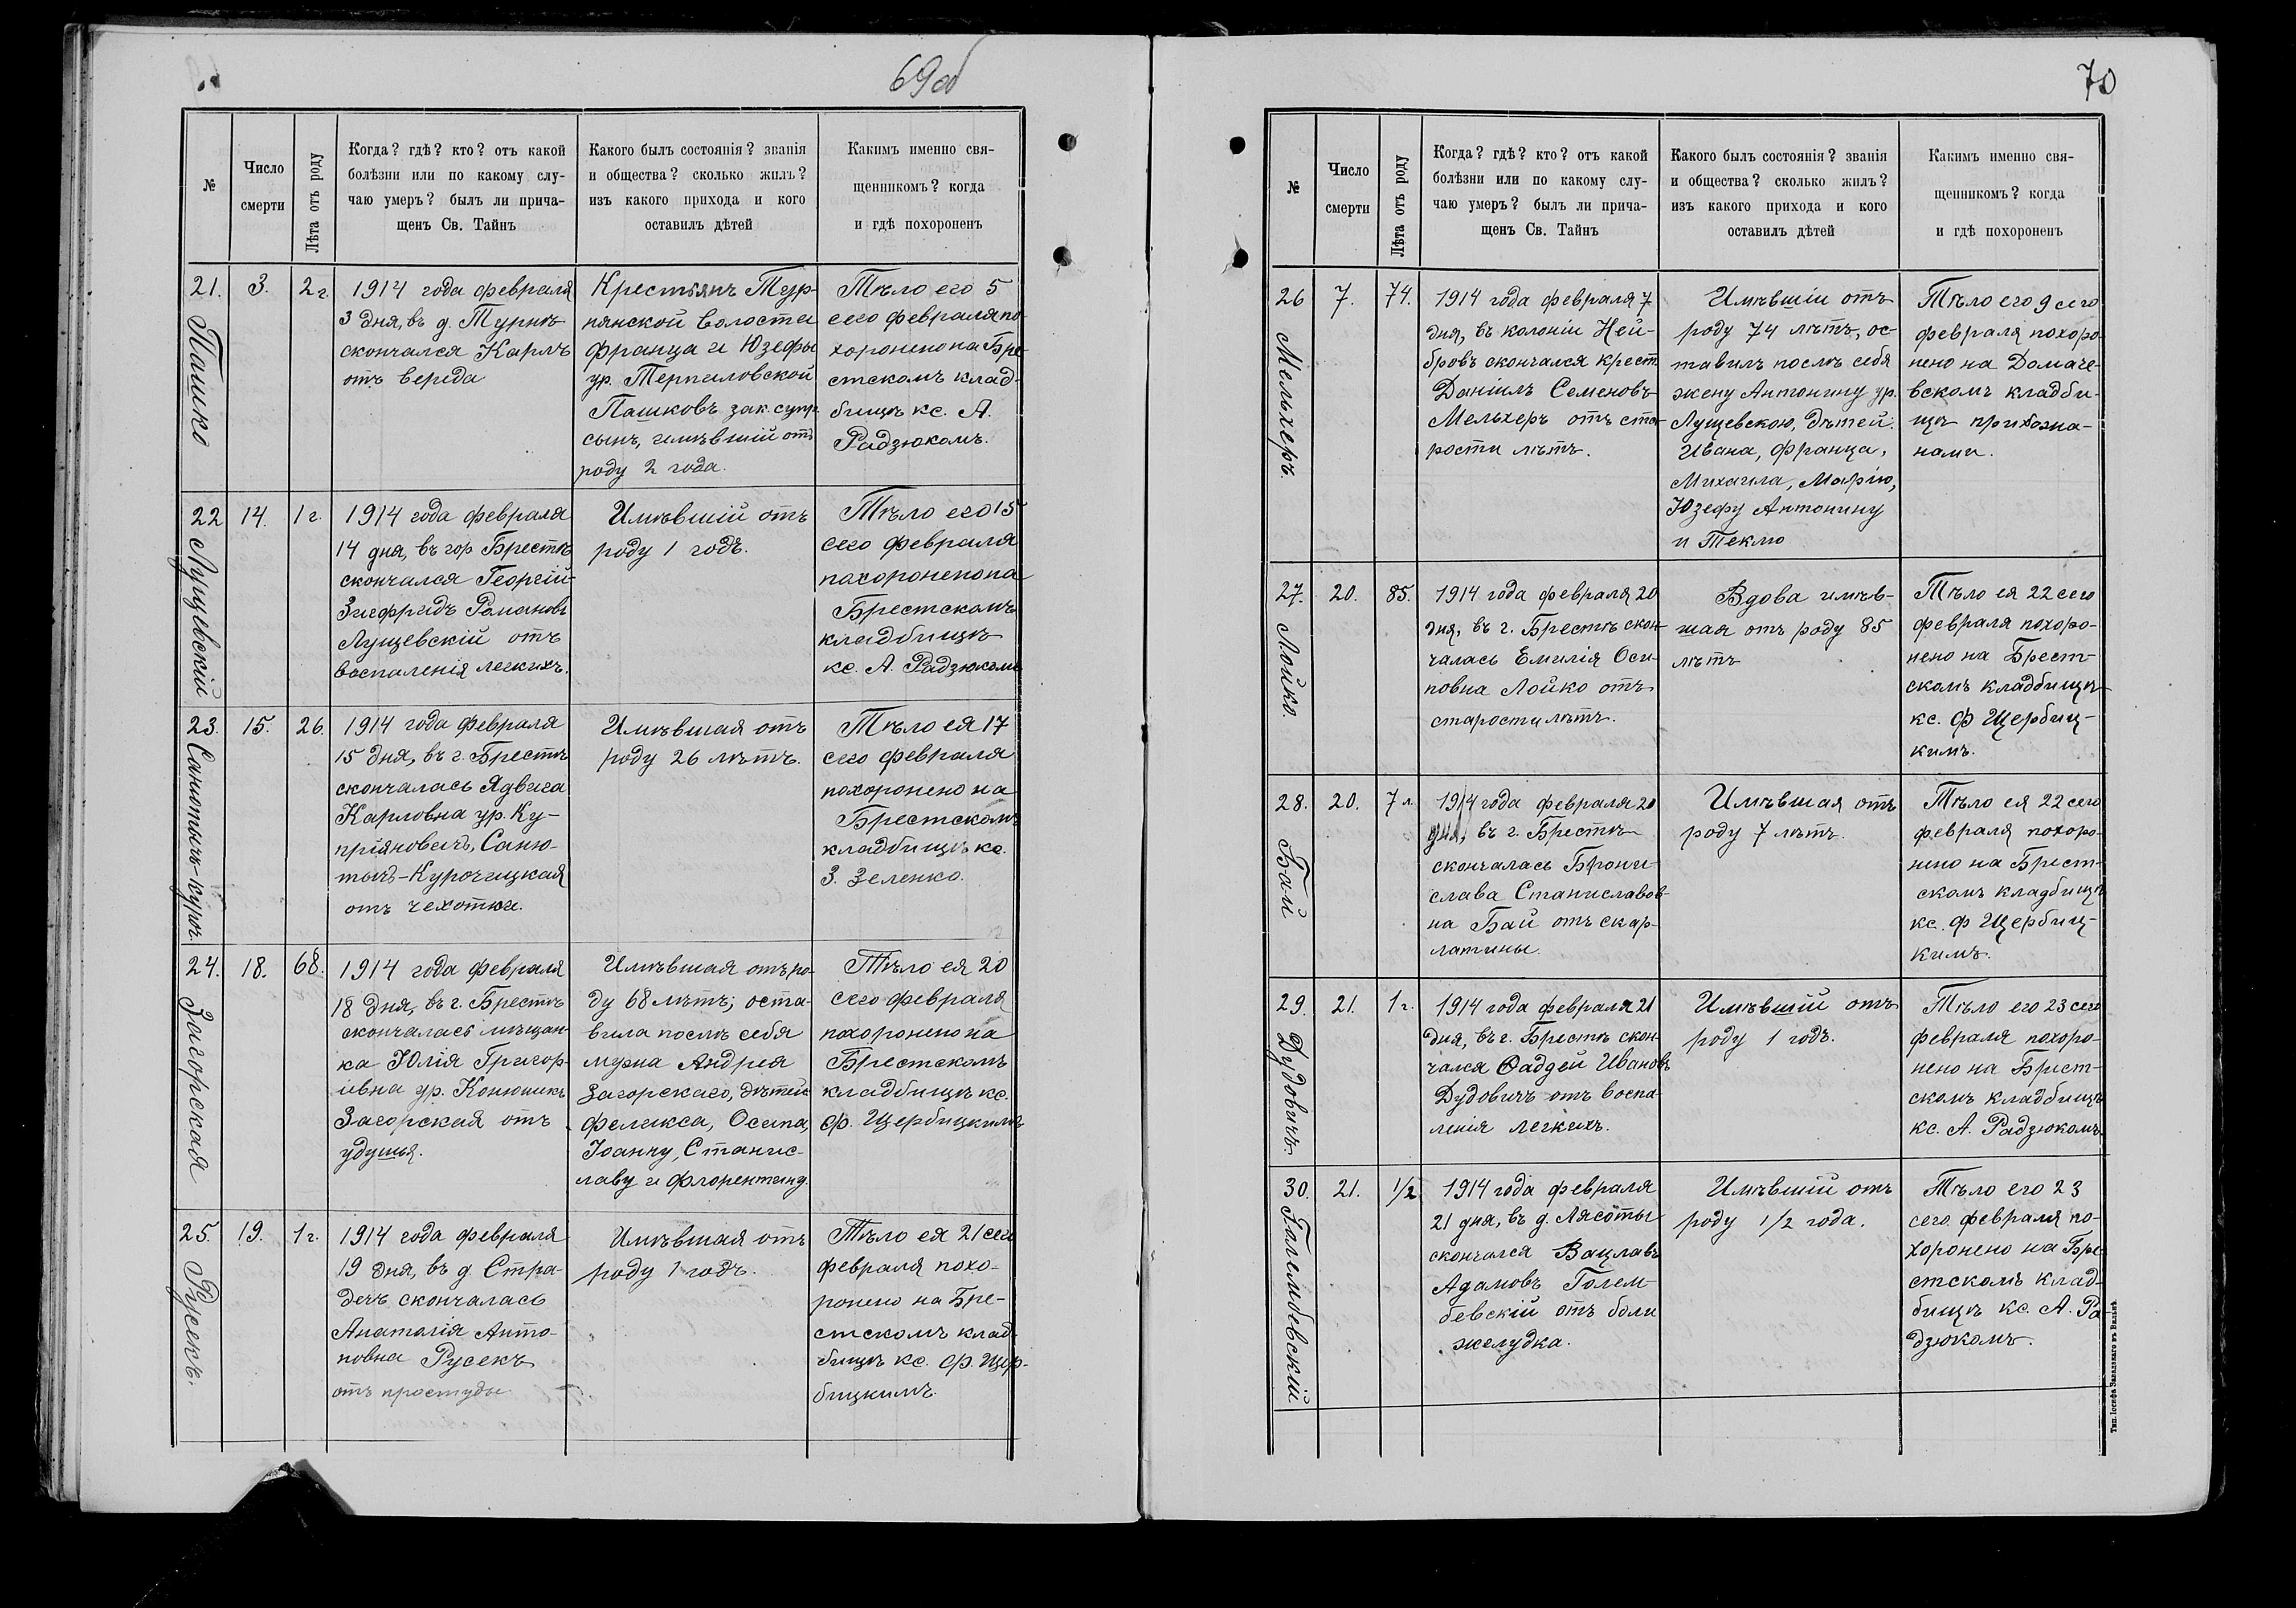 69об
№
Число
смерти
Лѣта отъ роду
Когда? гдѣ? кто? отъ какой
болѣзни или по какому слу-
чаю умеръ? былъ ли прича-
щенъ Св. Тайнъ
Какого былъ состоянія? званія
и общества? сколько жилъ?
изъ какого прихода и кого
оставилъ дѣтей
Какимъ именно свя-
щенникомъ? когда
и гдѣ похороненъ
21.
Пашко
3.
2 г.
1914 года февраля
3 дня, въ д. Турнѣ
скончался Карлъ
отъ вереда
Крестьянъ Тур-
нянской волости
Франца и Юзефы
ур. Терпиловской
Пашковъ зак. супр.
сынъ, имѣвшій отъ
роду 2 года.
Тѣло его 5
сего февраля по-
хоронено на Бре-
стскомъ клад-
бищѣ кс. А.
Радзюкомъ.
22
Лущевскій
14.
1 г.
1914 года февраля
14 дня, въ гор Брестѣ
скончался Георгій-
Зигфридъ Романовъ
Лущевскій отъ
воспаленія легкихъ.
Имѣвшій отъ
роду 1 годъ.
Тѣло его 15
сего февраля
похоронено на
Брестскомъ
кладбищѣ
кс. А. Радзюкомъ
23.
Санютычъ-Куроч.
15.
26.
1914 года февраля
15 дня, въ г. Брестѣ
скончалась Ядвига
Карловна ур. Ку-
пріяновичъ, Саню-
тычъ-Курочицкая
отъ чехотки.
Имѣвшая отъ
роду 26 лѣтъ.
Тѣло ея 17
сего февраля
похоронено на
Брестскомъ
кладбищѣ кс.
З. Зеленко.
24.
Загорская
18.
68.
1914 года февраля
18 дня, въ г. Брестѣ
скончалась мѣщан-
ка Юлія Григор-
іевна ур. Конюшикъ
Загорская отъ
удушья.
Имѣвшая отъ ро-
ду 68 лѣтъ; оста-
вила послѣ себя
мужа Андрея
Загорскаго, дѣтей
Феликса, Осипа,
Іоанну, Станис-
лаву и Флорентину.
Тѣло ея 20
сего февраля
похоронено на
Брестскомъ
кладбищѣ кс.
Ф. Щербицкимъ
25.
Русекъ.
19.
1 г.
1914 года февраля
19 дня, въ д. Стра-
дечъ скончалась
Анатолія Анто-
новна Русекъ
отъ простуды
Имѣвшая отъ
роду 1 годъ.
Тѣло ея 21 сего
февраля похо-
ронено на Бре-
стскомъ клад-
бищѣ кс. Ф. Щер-
бицкимъ
70
№
Число
смерти
Лѣта отъ роду
Когда? гдѣ? кто? отъ какой
болѣзни или по какому слу-
чаю умеръ? былъ ли прича-
щенъ Св. Тайнъ
Какого былъ состоянія? званія
и общества? сколько жилъ?
изъ какого прихода и кого
оставилъ дѣтей
Какимъ именно свя-
щенникомъ? когда
и гдѣ похороненъ
26
Мельхеръ.
7.
74.
1914 года февраля 7
дня, въ колоніи Ней-
бровъ скончался крест.
Даніилъ Семеновъ
Мельхеръ отъ ста-
рости лѣтъ.
Имѣвшій отъ
роду 74 лѣтъ, ос-
тавилъ послѣ себя
жену Антонину ур.
Лущевскою, дѣтей:
Ивана, Франца,
Михаила, Марію,
Юзефу Антонину
и Теклю
Тѣло его 9 сего
февраля похоро-
нено на Домаче-
вскомъ кладби-
щѣ прихожа-
нами.
27.
Лойко.
20.
85.
1914 года февраля 20
дня, въ г. Брестѣ скон-
чалась Емилія Оси-
повна Лойко отъ
старости лѣтъ.
Вдова имѣв-
шая отъ роду 85
лѣтъ
Тѣло ея 22 сего
февраля похоро-
нено на Брест-
скомъ кладбищѣ
кс. Ф Щербиц-
кимъ.
28.
Бай
20.
7 л.
1914 года февраля 20
дня, въ г. Брестѣ
скончалась Брони-
слава Станиславов-
на Бай отъ скар-
латины.
Имѣвшая отъ
роду 7 лѣтъ.
Тѣло ея 22 сего
февраля похоро-
нено на Брест-
скомъ кладбищѣ
кс. Ф Щербиц-
кимъ.
29.
Дудовичъ.
21.
1 г.
1914 года февраля 21
дня, въ г. Брестѣ скон-
чался Фаддей Ивановъ
Дудовичъ отъ воспа-
ленія легкихъ.
Имѣвшій отъ
роду 1 годъ.
Тѣло его 23 сего
февраля похоро-
нено на Брест-
скомъ кладбищѣ
кс. А. Радзюкомъ.
30.
Голембевскій
21.
1/2
1914 года февраля
21 дня, въ д. Лясоты
скончался Вацлавъ
Адамовъ Голем-
бевскій отъ боли
желудка.
Имѣвшій отъ
роду 1/2 года.
Тѣло его 23
сего февраля по-
хоронено на Бре-
стскомъ клад-
бищѣ кс. А. Ра-
дзюкомъ.
Тип. Іосифа Завадзкаго въ Вильнѣ.